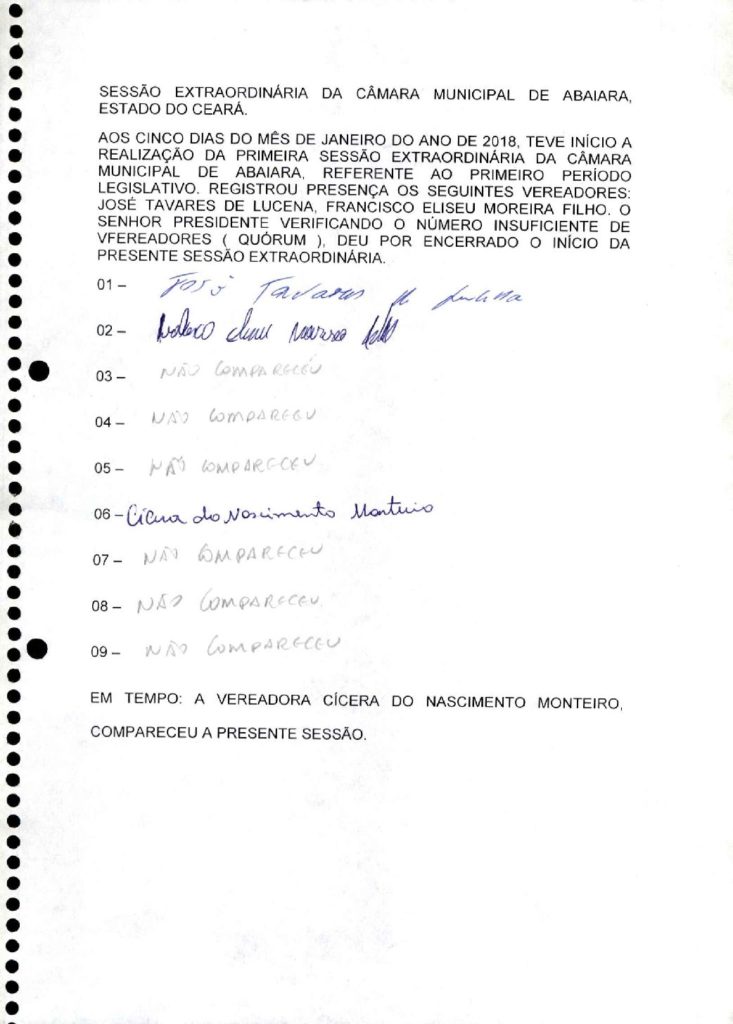 SESSÃO EXTRAORDINÁRIA DA CÂMARA MUNICIPAL DE ABAIARA,
ESTADO DO CEARÁ.
AOS CINCO DIAS DO MÊS DE JANEIRO DO ANO DE 2018, TEVE INÍCIO A
REALIZAÇÃO DA PRIMEIRA SESSÃO EXTRAORDINÁRIA DA CÂMARA
MUNICIPAL DE ABAIARA, REFERENTE AO PRIMEIRO PERÍODO
LEGISLATIVO. REGISTROU PRESENÇA OS SEGUINTES VEREADORES:
JOSÉ TAVARES DE LUCENA, FRANCISCO ELISEU MOREIRA FILHO. O
SENHOR PRESIDENTE VERIFICANDO O NÚMERO INSUFICIENTE DE
VFEREADORES ( QUÓRUM ), DEU POR ENCERRADO O INÍCIO DA
PRESENTE SESSÃO EXTRAORDINÁRIA.
01 – José Tavares de Lucena
02 –
03 – NÃO COMPARECEU
04 – NÃO COMPARECEU
05 – NÃO COMPARECEU
06 – Cícera do Nascimento Monteiro
07 – NÃO COMPARECEU
08 – NÃO COMPARECEU
09 – NÃO COMPARECEU
EM TEMPO: A VEREADORA CÍCERA DO NASCIMENTO MONTEIRO,
COMPARECEU A PRESENTE SESSÃO.